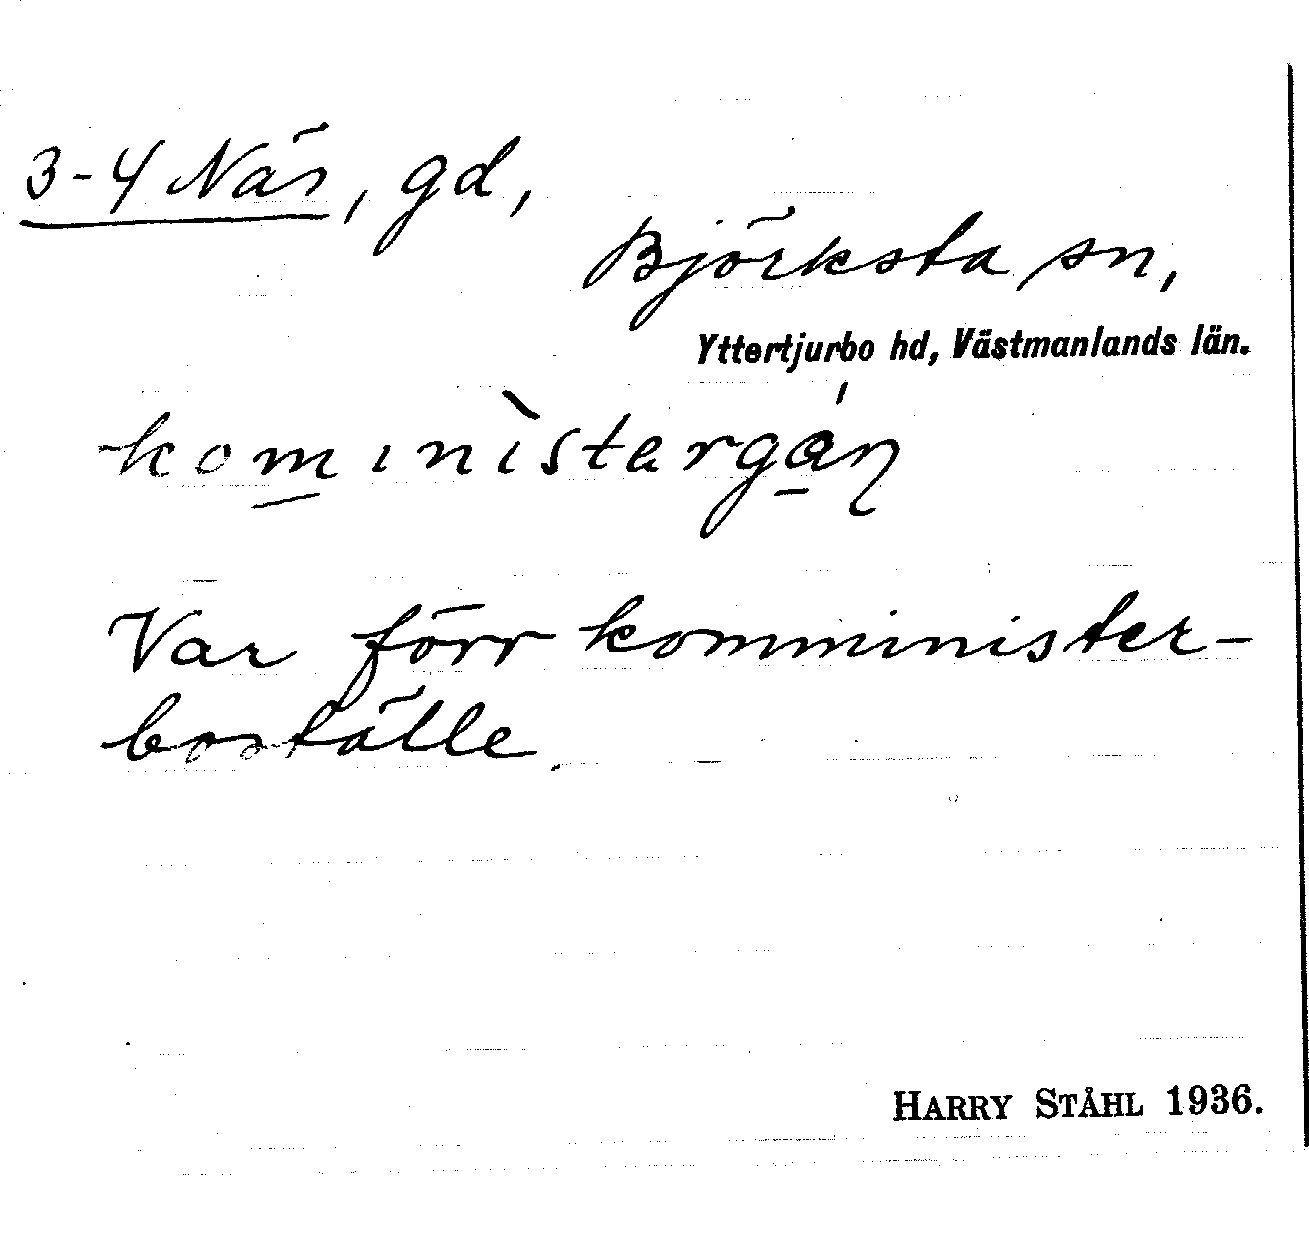 3-4 Näs, gd,
Björksta sn,
Yttertjurbo hd, Västmanlands län.
komınìstargán
Var förr komminister-
boställe.
HARRY STÅHL 1936.